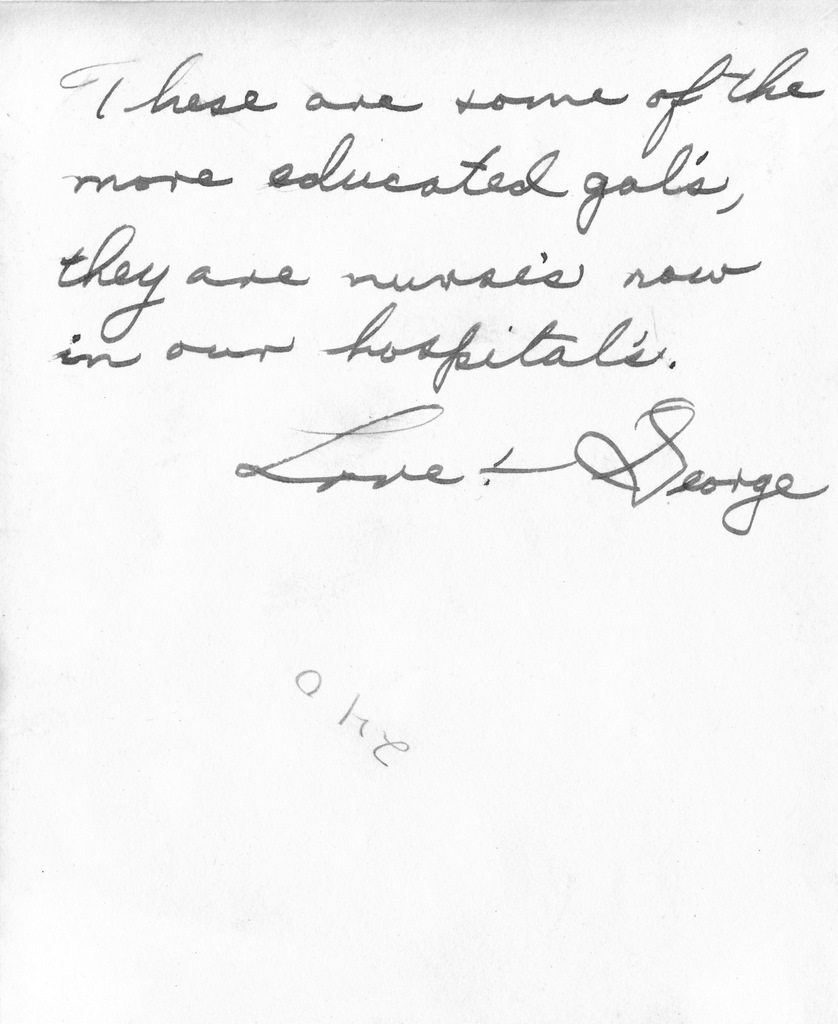 These are some of the
more educated gal's,
they are nurse's now
in our hospital's.
Love! — George
240